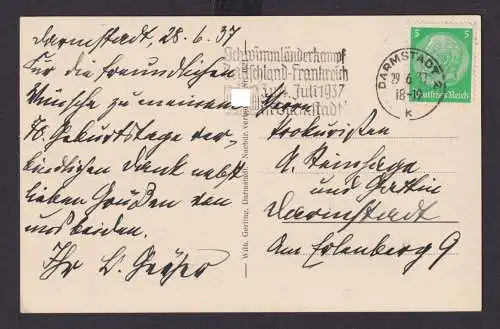 Darmstadt, 28.6.37
Für die freundlichen
Wünsche zu meinem
70. Geburtstage ver-
bindlichen Dank nebst
lieben Grüßen von
uns beiden.
Ihr
Schwimmländerkampf
Deutschland-Frankreich
Juli 1937
Darmstadt
DARMSTADT
29.6.
18-19
K
5 5
Deutsches Reich
Herrn
Prokuristen
und Gattin
Darmstadt
Am Erlenberg 9
Wilh. Gerling, Darmstadt.